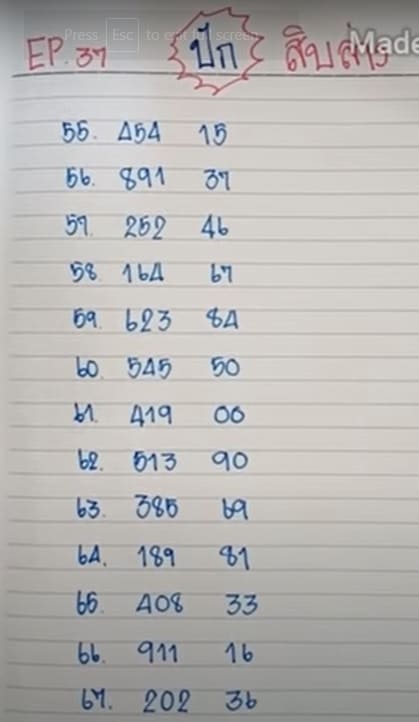 Press Esc to exit full screen
EP. 37 ปัก สิบล่าง Made
55. 454 15
56. 891 37
57. 252 46
58. 164 67
59. 623 84
60. 545 50
61. 419 00
62. 513 90
63. 385 69
64. 189 81
65. 408 33
66. 911 16
67. 202 36